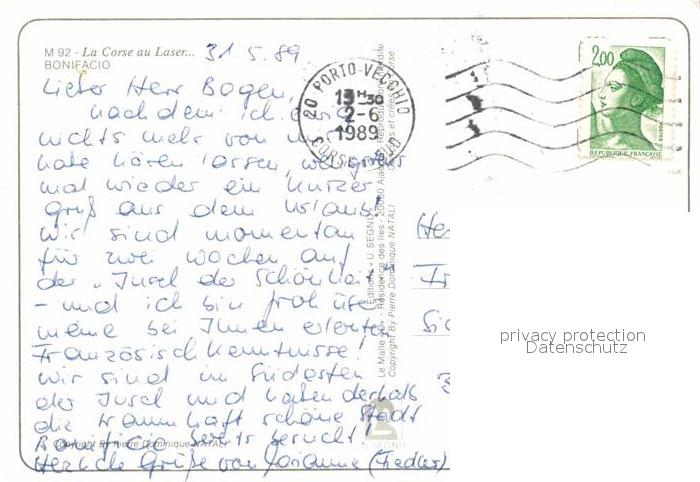 M 92 - La Corse au Laser...
BONIFACIO
31.5.89
Lieber Herr Bogen,
nachdem ich
nichts mehr von mir
habe hören lassen,
mal wieder ein kurzer
Gruß aus dem Urlaub!
Wir sind momentan
für zwei Wochen auf
der „Insel der Schönheit"
- und ich bin froh über
meine bei Ihnen erlernten
Französischkenntnisse!
Wir sind im Südosten
der Insel und haben deshalb
die traumhaft schöne Stadt
Bonifacio bereits besucht!
Herzliche Grüße von Marianne (Fiedler)
20 PORTO-VECCHIO
13 H 30
2-6
1989
CORSE
2,00
POSTES
REPUBLIQUE FRANÇAISE
Editions « U. SEGNU »
Le Malte « D » - Résidence des Iles - 20000
Copyright By Pierre Dominique NATALI
Reproduction interdite
et créé en Corse
Copyright By Pierre Dominique NATALI
privacy protection
Datenschutz